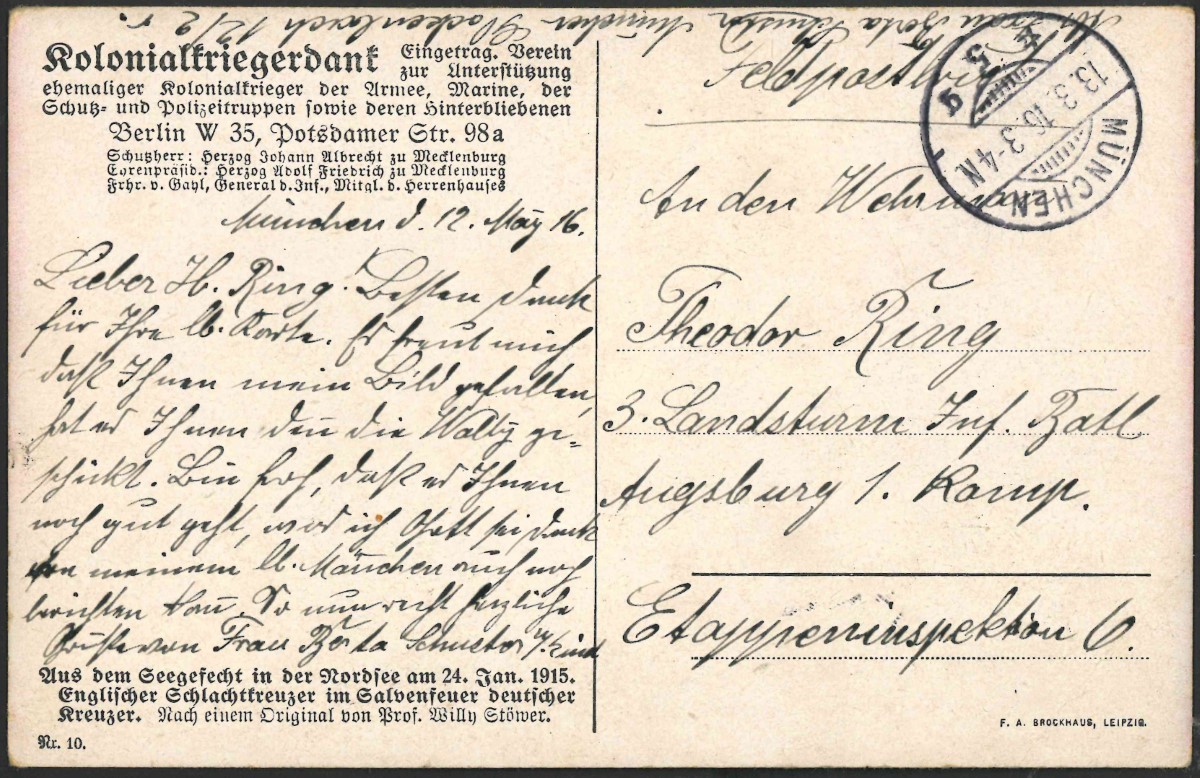 Abs. Frau Berta Schuster München
Kolonialkriegerdank Eingetrag. Verein
zur Unterstützung
ehemaliger Kolonialkrieger der Armee, Marine, der
Schutz- und Polizeitruppen sowie deren Hinterbliebenen
Berlin W 35, Potsdamer Str. 98a
Schutzherr: Herzog Johann Albrecht zu Mecklenburg
Ehrenpräsid.: Herzog Adolf Friedrich zu Mecklenburg
Frhr. v. Gayl, General d. Inf., Mitgl. d. Herrenhauses
München d. 12. 16.
Lieber H. Ring! Besten Dank
für Ihre lb. Karte. Es freut mich
daß Ihnen mein Bild gefallen,
hat es Ihnen den die Wally ge-
schickt. Bin froh, daß es Ihnen
noch gut geht, was ich Gott sei Dank
von meinem lb. Männchen auch noch
berichten kann. So nun recht herzliche
Grüße von Frau Berta Schuster u. Kind
Aus dem Seegefecht in der Nordsee am 24. Jan. 1915.
Englischer Schlachtkreuzer im Salvenfeuer deutscher
Kreuzer. Nach einem Original von Prof. Willy Stöwer.
Nr. 10.
Feldpostbrief
MÜNCHEN
13.3.16.3-4N
An den Wehrmann
Theodor Ring
3. Landsturm Inf. Batl
Augsburg 1. Komp.
Etappeninspektion 6.
F. A. BROCKHAUS, LEIPZIG.